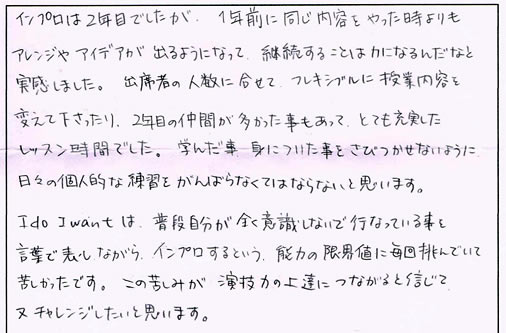 インプロは2年目でしたが、1年前に同じ内容をやった時よりも
アレンジやアイデアが出るようになって、継続することは力になるんだなと
実感しました。出席者の人数に合せて、フレキシブルに授業内容を
変えて下さったり、2年目の仲間が多かった事もあって、とても充実した
レッスン時間でした。学んだ事、身についた事をさびつかせないように
日々の個人的な練習をがんばらなくてはならないと思います。
I do I want は、普段自分が全く意識しないで行なっている事を
言葉で表しながら、インプロするという、能力の限界値に毎回挑んでいて
苦しかったです。この苦しみが演技力の上達につながると信じて
又チャレンジしたいと思います。